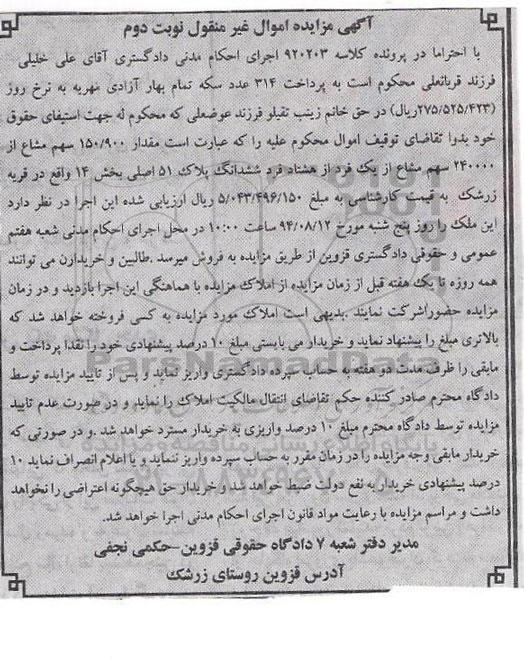 آگهی مزایده اموال غیر منقول نوبت دوم
با احتراما در پرونده کلاسه ۹۲۰۲۰۳ اجرای احکام مدنی دادگستری آقای علی خلیلی
فرزند قربانعلی محکوم است به پرداخت ۳۱۴ عدد سکه تمام بهار آزادی مهریه به نرخ روز
(۲۷۵/۵۲۵/۴۲۳ریال) در حق خانم زینب تقیلو فرزند عوضعلی که محکوم له جهت استیفای حقوق
خود بدوا تقاضای توقیف اموال محکوم علیه را که عبارت است مقدار ۱۵۰/۹۰۰ سهم مشاع از
۲۴۰۰۰۰ سهم مشاع از یک فرد از هشتاد فرد ششدانگ پلاک ۵۱ اصلی بخش ۱۴ واقع در قریه
زرشک به قیمت کارشناسی به مبلغ ۵/۰۴۳/۴۹۶/۱۵۰ ریال ارزیابی شده این اجرا در نظر دارد
این ملک را روز پنج شنبه مورخ ۹۴/۰۸/۱۲ ساعت ۱۰:۰۰ در محل اجرای احکام مدنی شعبه هفتم
عمومی و حقوقی دادگستری قزوین از طریق مزایده به فروش میرسد .طالبین و خریدازن می توانند
همه روزه تا یک هفته قبل از زمان مزایده از املاک مزایده با هماهنگی این اجرا بازدید و در زمان
مزایده حضوراشرکت نمایند .بدیهی است املاک مورد مزایده به کسی فروخته خواهد شد که
بالاتری مبلغ را پیشنهاد نماید و خریدار می بایستی مبلغ ۱۰ درصد پیشنهادی خود را نقدا پرداخت و
مابقی را ظرف مدت دو هفته به حساب سپرده دادگستری واریز نماید و پس از تایید مزایده توسط
دادگاه محترم صادر کننده حکم تقاضای انتقال مالکیت املاک را نماید و در صورت عدم تایید
مزایده توسط دادگاه محترم مبلغ ۱۰ درصد واریزی به خریدار مسترد خواهد شد .و در صورتی که
خریدار مابقی وجه مزایده را در زمان مقرر به حساب سپرده واریز ننماید و یا اعلام انصراف نماید ۱۰
درصد پیشنهادی خریدار به نفع دولت ضبط خواهد شد و خریدار حق هیچگونه اعتراضی را نخواهد
داشت و مراسم مزایده با رعایت مواد قانون اجرای احکام مدنی اجرا خواهد شد.
مدیر دفتر شعبه ۷ دادگاه حقوقی قزوین-حکمی نجفی
آدرس قزوین روستای زرشک
ParsNamadData